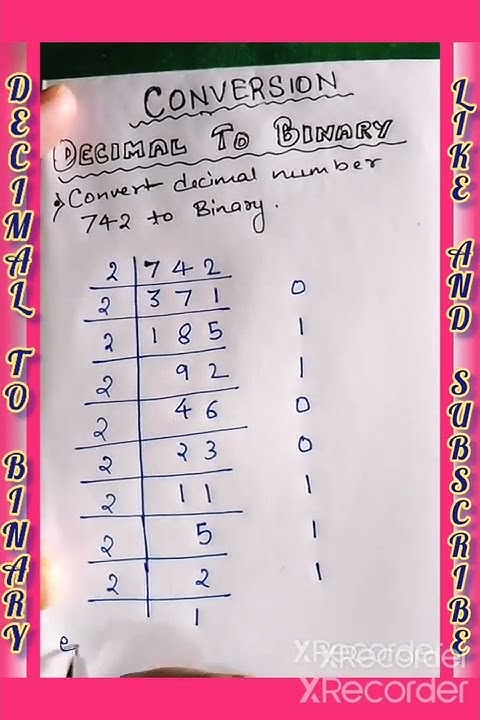 CONVERSION
DECIMAL TO BINARY
Convert decimal number
742 to Binary.
2 742
2 371 0
2 185 1
2 92 1
2 46 0
2 23 0
2 11 1
2 5 1
2 2 1
1
e
DECIMAL TO BINARY
LIKE AND SUBSCRIBE
XRecorder
XRecorder
XRecorder